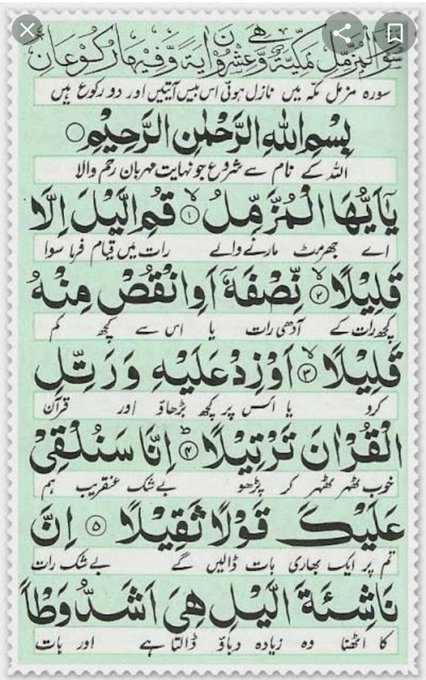 سورة المزمل مكية وهي عشرون اية وفيها ركوعان
سورہ مزمل مکہ میں نازل ہوئی اس میں بیس آیتیں اور دو رکوع ہیں
بِسْمِ اللهِ الرَّحْمٰنِ الرَّحِيْمِ
اللہ کے نام سے شروع جو نہایت مہربان رحم والا
يٰۤاَيُّهَا الْمُزَّمِّلُ ۙ﴿۱﴾ قُمِ الَّيْلَ اِلَّا
اے جھرمٹ مارنے والے رات میں قیام فرما سوا
قَلِيْلًا ۙ﴿۲﴾ نِّصْفَهٗۤ اَوِ انْقُصْ مِنْهُ
کچھ رات کے آدھی رات یا اس سے کچھ کم
قَلِيْلًا ۙ﴿۳﴾ اَوْ زِدْ عَلَيْهِ وَ رَتِّلِ
کرو یا اس پر کچھ بڑھاؤ اور قرآن
الْقُرْاٰنَ تَرْتِيْلًا ؕ﴿۴﴾ اِنَّا سَنُلْقِيْ
خوب ٹھہر ٹھہر کر پڑھو بے شک عنقریب ہم
عَلَيْكَ قَوْلًا ثَقِيْلًا ﴿۵﴾ اِنَّ
تم پر ایک بھاری بات ڈالیں گے بے شک رات
نَاشِئَةَ الَّيْلِ هِيَ اَشَدُّ وَطْاً
کا اٹھنا وہ زیادہ دباؤ ڈالتا ہے اور بات